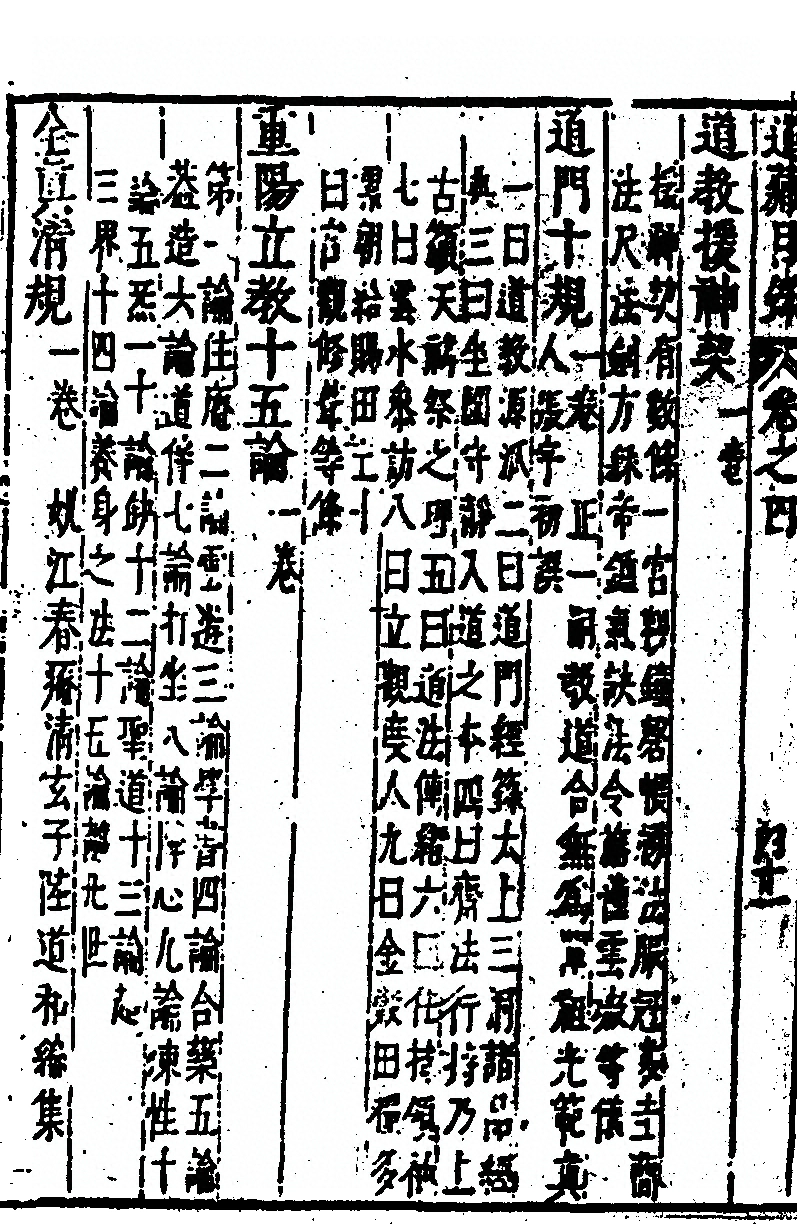 道藏目錄 卷之四
道教援神契 一卷
援神契有數條一宮觀鐘磬帳 法服冠 圭簡
法尺法劍方 帝鐘氣訣法令 雲 等儀
道門十規 一卷 正一嗣教道合無為 光範真
人張宇初譔
一曰道教源派二曰道門經籙太上三洞諸品經
典三曰坐圜守靜入道之本四曰齋法行持乃上
古籲天 祭之 五曰道法傳緒六曰住持領袖
七曰雲水參訪八曰立觀度人九曰金穀田糧多
累朝給賜田 十
曰宮觀修葺等條
重陽立教十五論 一卷
第一論住庵二論雲遊三論學書四論合藥五論
蓋造六論道伴七論打坐八論降心九論鍊性十
論五炁十一論 十二論聖道十三論超
三界十四論養身之法十五論離凡世
全真清規 一卷 姚江春 清玄子陸道和編集